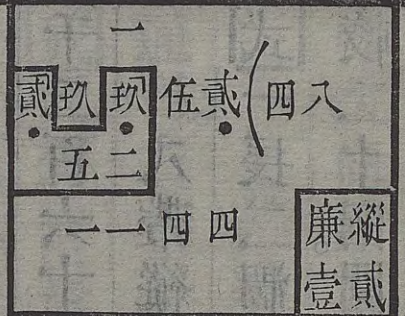 一
貳玖玖伍貳(四八
五二
一一四四
縱貳
廉壹